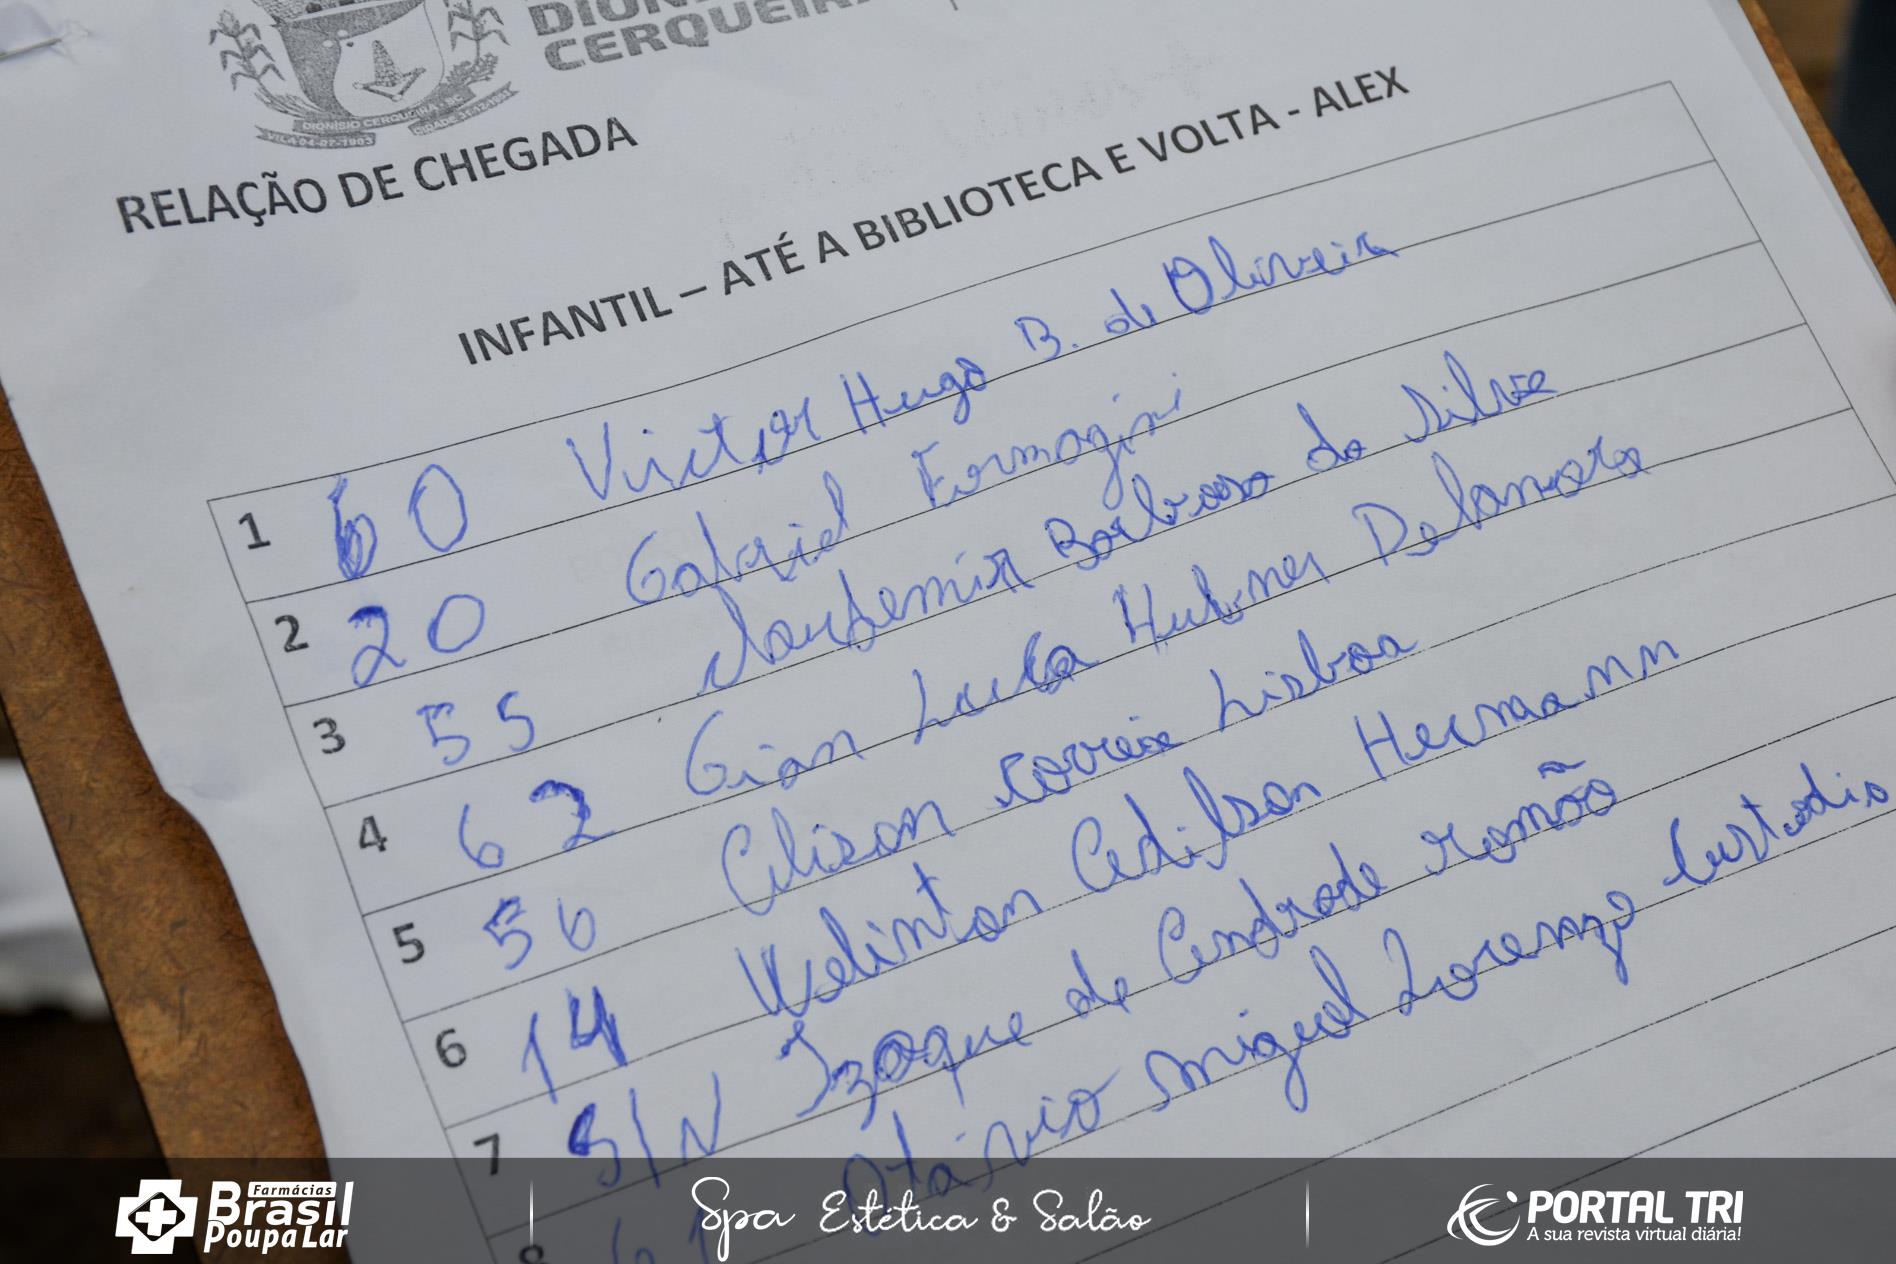 DIONÍSIO CERQUEIRA, SC
VILA 04-07-1903 CIDADE 31-12-1953
CERQUEIRA
RELAÇÃO DE CHEGADA
INFANTIL – ATÉ A BIBLIOTECA E VOLTA - ALEX
1 60 Victor Hugo B. de Oliveira
2 20 Gabriel Formagini
3 55 Barbosa da Silva
4 62 Gian Luca Hubner Delavora
5 56 Alison Correia Lisboa
6 14 Welinton Adilson Hermann
7 S/N Izaque de Andrade romão
8 61 Otávio Miguel Lorenzo Custodio
Farmácias
Brasil
PoupaLar
Spa Estética & Salão
PORTAL TRI
A sua revista virtual diária!